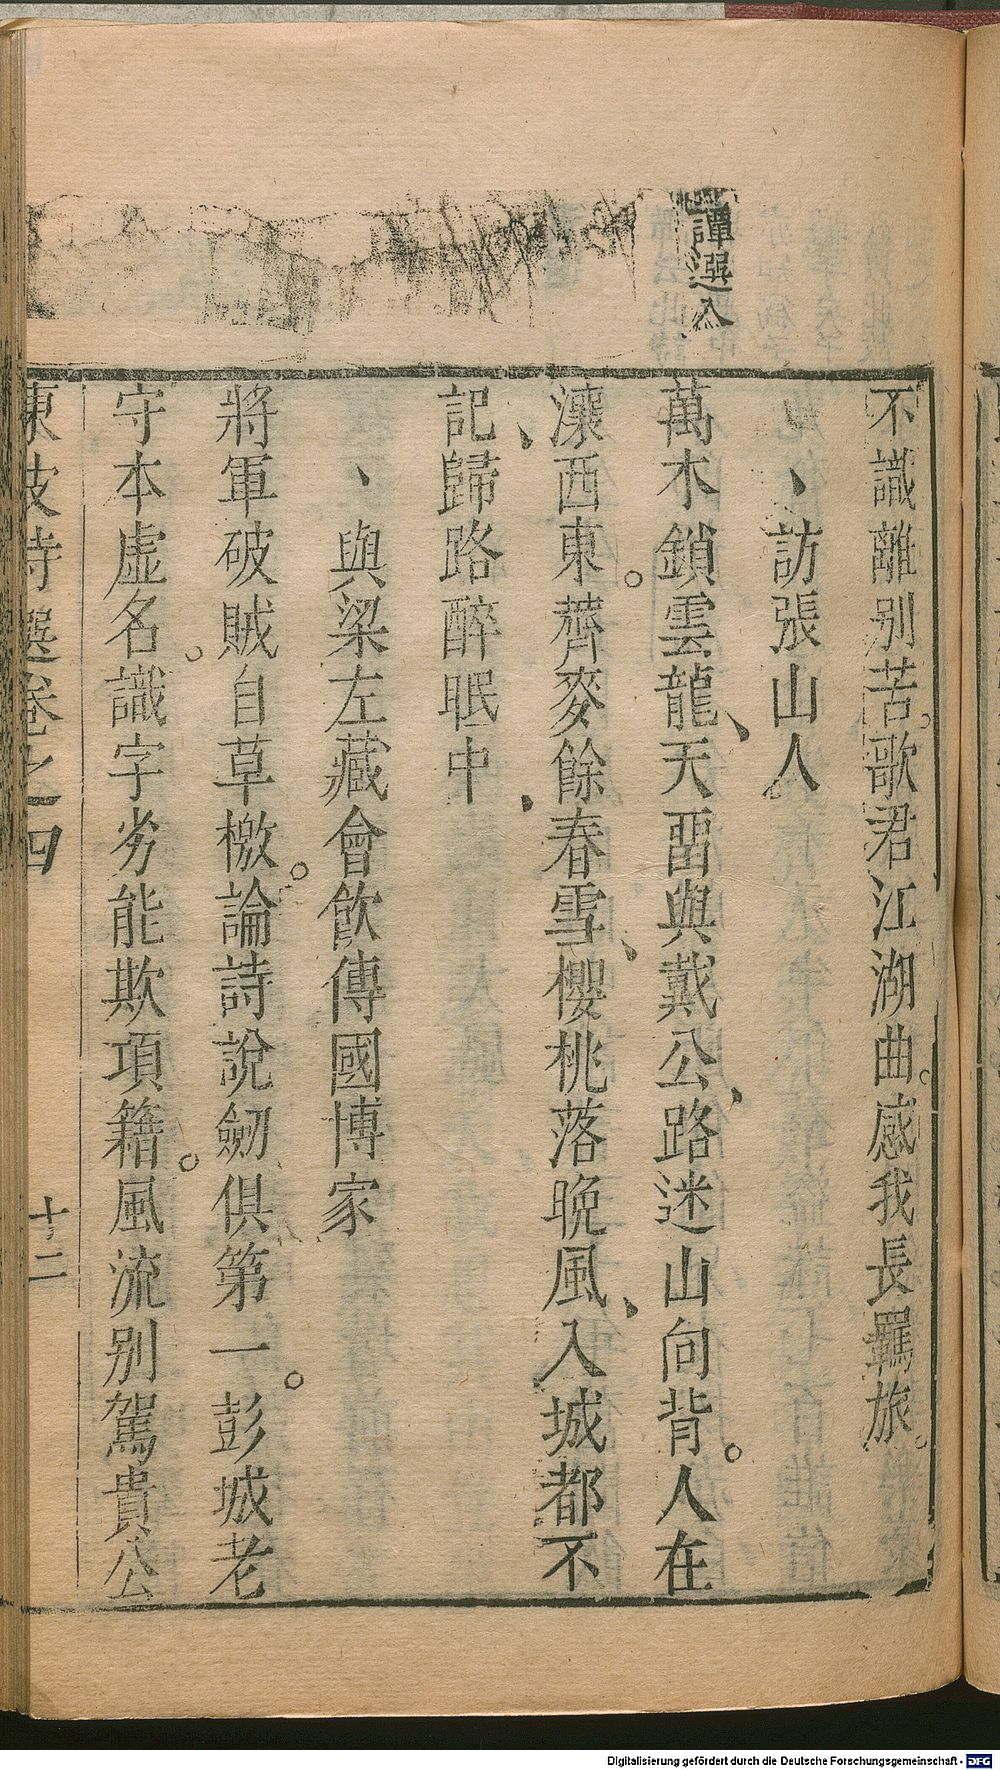 譚選入
不識離別苦。歌君江湖曲。感我長羈旅。
、訪張山人
萬木鎖雲龍、天畱與戴公、路迷山向背。人在
瀼西東。薺麥餘春雪、櫻桃落晚風、入城都不
記、歸路醉眠中、
、與梁左藏會飮傅國博家
將軍破賊自草檄。論詩說劒俱第一。彭城老
守本虛名。識字劣能欺項籍。風流別駕貴公
東坡詩選卷之四
十二
Digitalisierung gefördert durch die Deutsche Forschungsgemeinschaft - DFG